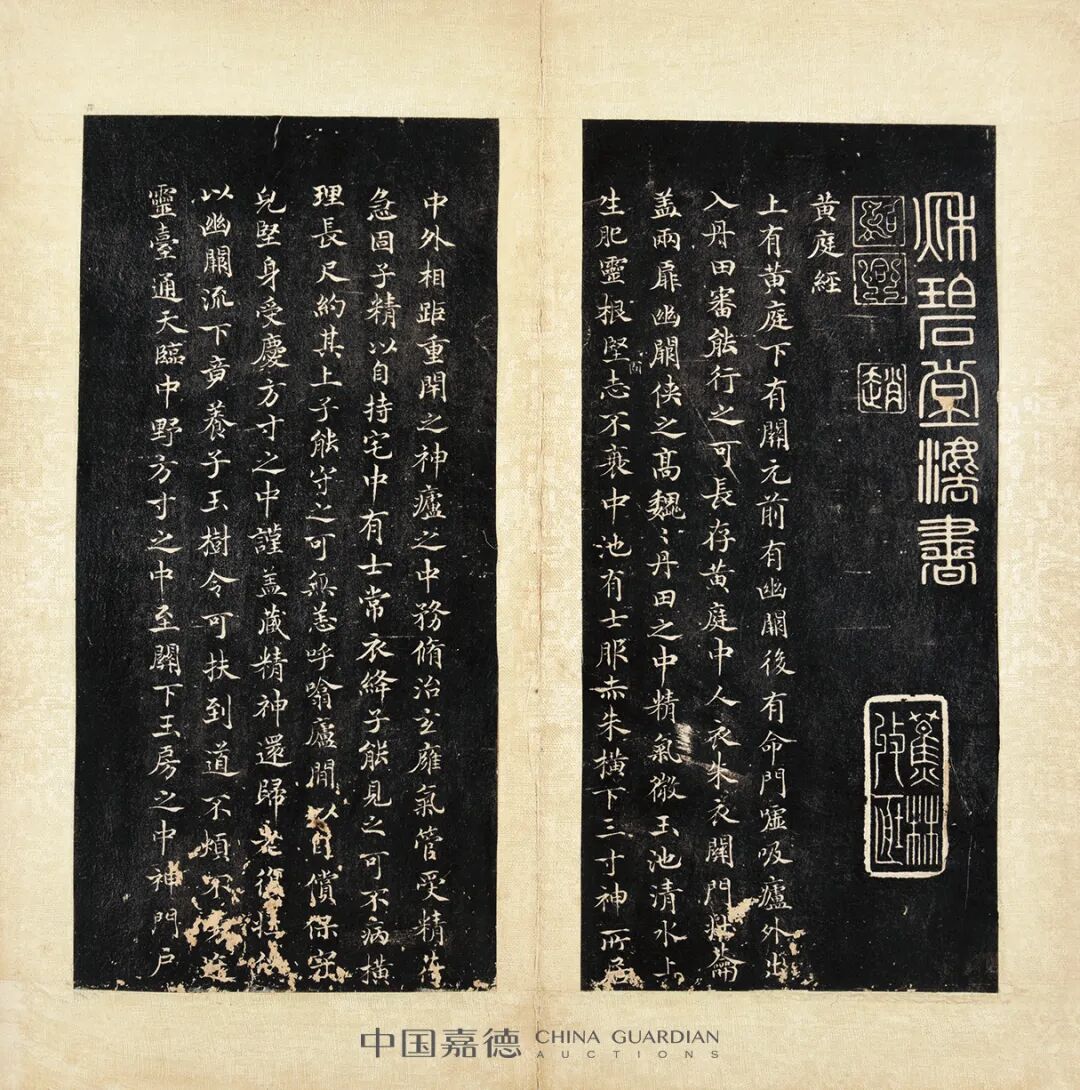 秌碧堂法書
黃庭經
上有黃庭下有關元前有幽闕後有命門噓吸廬外出
入丹田審能行之可長存黃庭中人衣朱衣關門壯蘥
盖兩扉幽闕俠之高魏〻丹田之中精氣微玉池清水上
生肥靈根堅志不衰中池有士服赤朱橫下三寸神所居
中外相距重閇之神廬之中務脩治玄雍氣管受精符
急固子精以自持宅中有士常衣絳子能見之可不病橫
理長尺約其上子能守之可無恙呼噏廬間以自償保守
皃堅身受慶方寸之中謹盖藏精神還歸老復壯俠
以幽闕流下竟養子玉樹令可扶至道不煩不旁迕
靈臺通天臨中野方寸之中至關下玉房之中神門戶
蕉林
中国嘉德 CHINA GUARDIAN
AUCTIONS